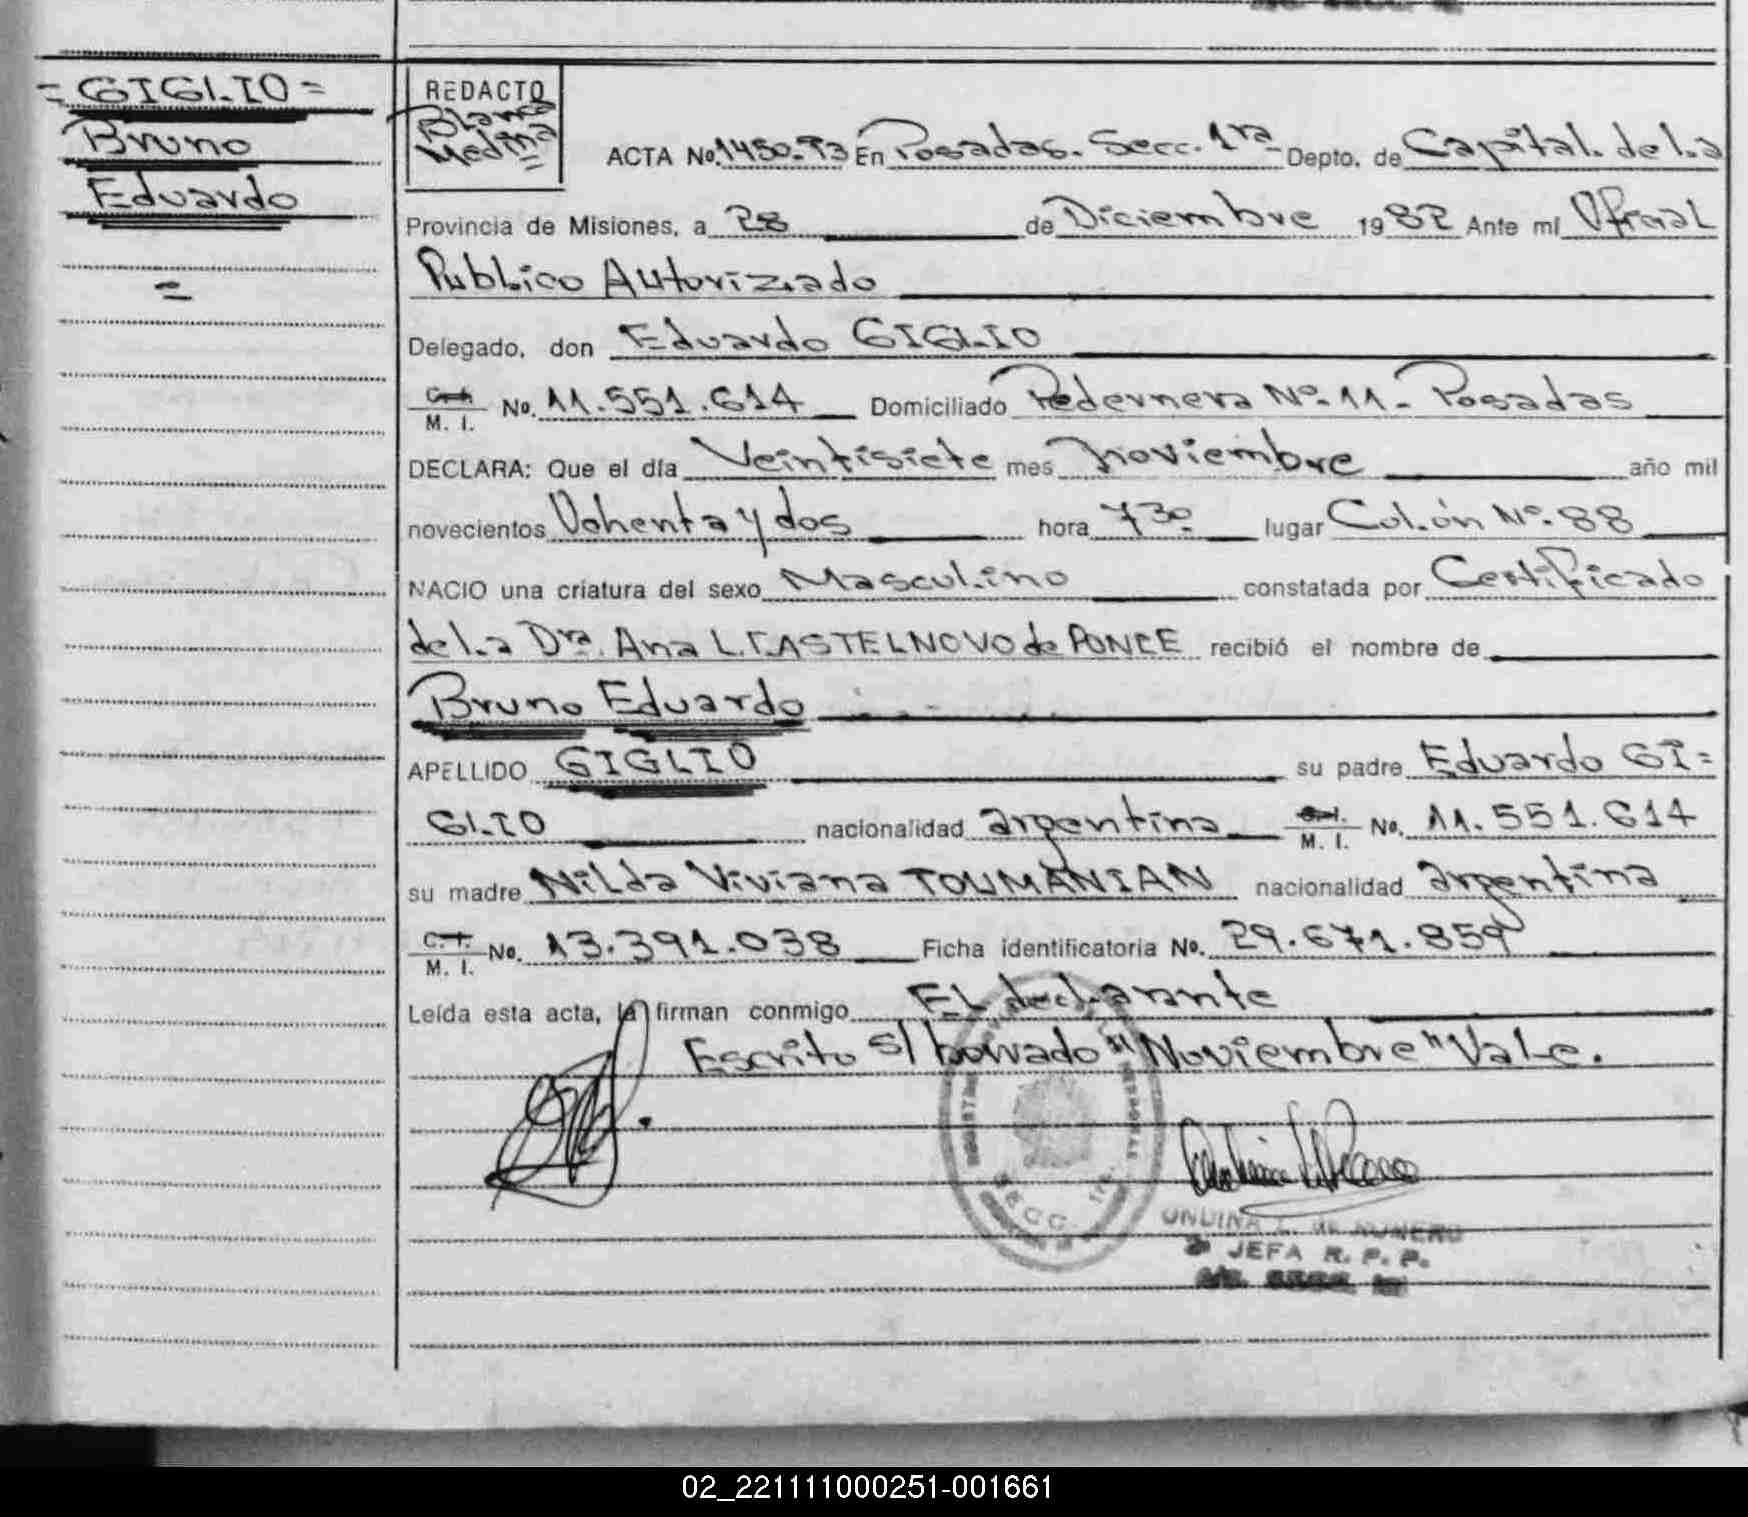 = GIGLIO =
Bruno
Eduardo
=
REDACTO
Blanca
Medina
ACTA No. 1450-T3 En Posadas. Secc. 1ra Depto. de Capital. de la
Provincia de Misiones, a 28 de Diciembre 1982 Ante mí Oficial
Publico Autorizado
Delegado, don Eduardo GIGLIO
C.I.
M. I. No. 11.551.614 Domiciliado Pedernera Nº 11 - Posadas
DECLARA: Que el día Veintisiete mes noviembre año mil
novecientos Ochenta y dos hora 7 30 lugar Colón Nº 88
NACIO una criatura del sexo Masculino constatada por Certificado
de la Dra. Ana L. CASTELNOVO de PONCE recibió el nombre de
Bruno Eduardo
APELLIDO GIGLIO su padre Eduardo GI=
GLIO nacionalidad argentina C.I. M. I. No. 11.551.614
su madre Nilda Viviana TOUMANIAN nacionalidad argentina
C.I.
M. I. No. 13.391.038 Ficha identificatoria No. 29.671.859
Leída esta acta, la firman conmigo El declarante
Escrito s/ borrado "Noviembre" Vale.
SECC. 1ra.
UNDINA L. de ROMERO
JEFA R. P. P.
02_221111000251-001661